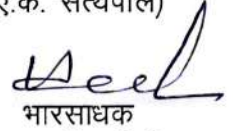 ए.के. सत्यपाल)
भारसाधक